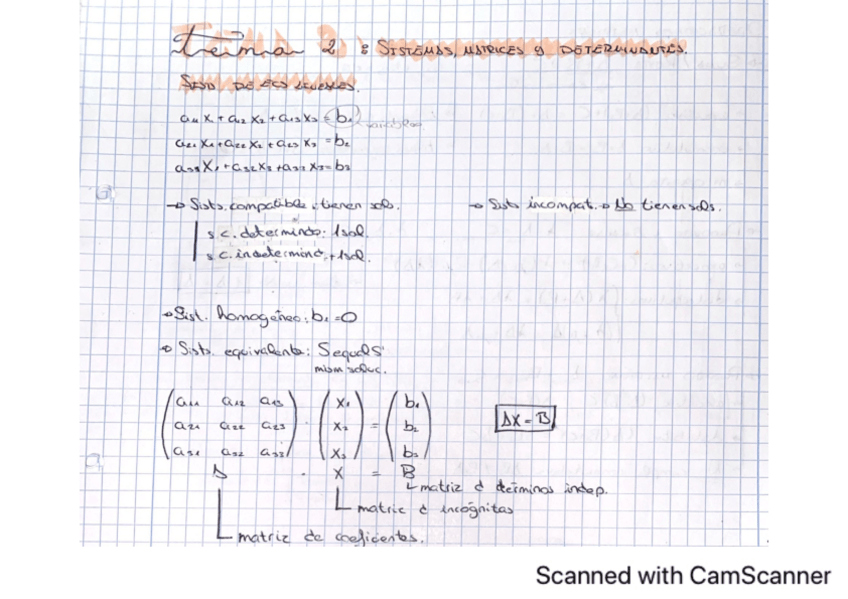 Tema 2: SISTEMAS, MATRICES y DETERMINANTES.
SIST. DE ECS LINEALES.
a₁₁ x₁ + a₁₂ x₂ + a₁₃ x₃ = b₁
a₂₁ x₁ + a₂₂ x₂ + a₂₃ x₃ = b₂
a₃₁ x₁ + a₃₂ x₂ + a₃₃ x₃ = b₃
→ Sists. compatible: tienen sols. → Sists incompat. → No tienen sols.
s c. determindo: 1 sol.
s c. indetermind. + 1 sol.
→ Sist. homogéneo: b₁ = 0
→ Sists. equivalente: S equal S'
mism soluc.
(a₁₁ a₁₂ a₁₃) (x₁) (b₁)
(a₂₁ a₂₂ a₂₃) · (x₂) = (b₂) AX = B
(a₃₁ a₃₂ a₃₃) (x₃) (b₃)
A · X = B
matriz d términos indep.
matriz d incógnitas
matriz de coeficientes.
Scanned with CamScanner